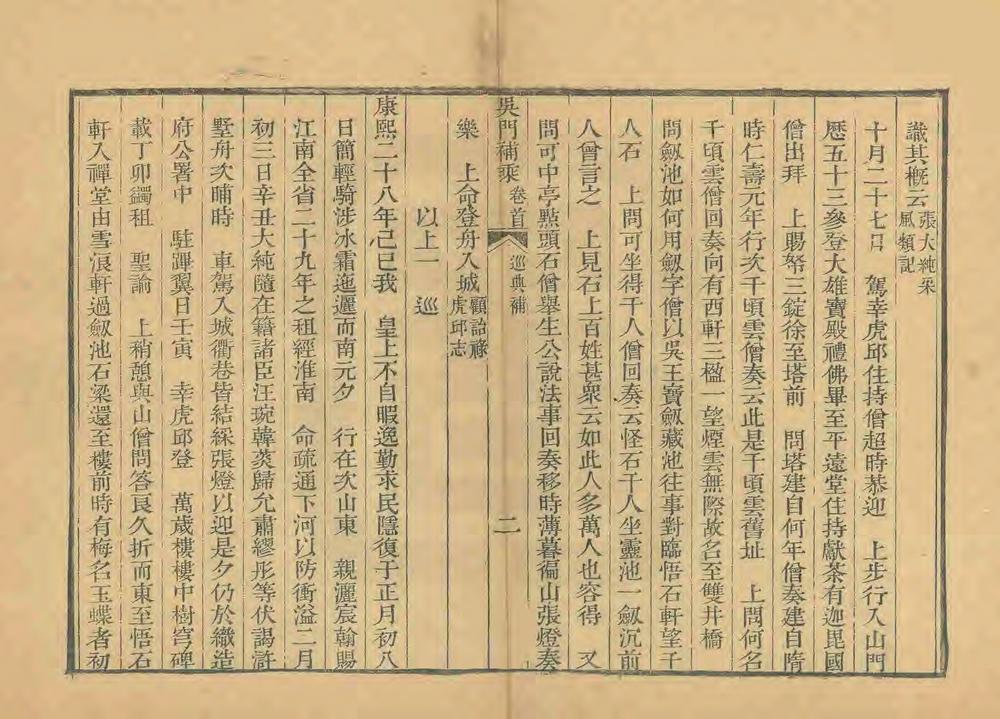 識其概云張大純采風類記
十月二十七日　駕幸虎邱住持僧超時恭迎　上步行入山門
歷五十三參登大雄寶殿禮佛畢至平遠堂住持獻茶有迦毘國
僧出拜　上賜帑三錠徐至塔前　問塔建自何年僧奏建自隋
時仁壽元年行次千頃雲僧奏云此是千頃雲舊址　上問何名
千頃雲僧回奏向有西軒三楹一望煙雲無際故名至雙井橋
問劔池如何用劔字僧以吳王寶劔藏池往事對臨悟石軒望千
人石　上問可坐得千人僧回奏云怪石千人坐靈池一劔沉前
人曾言之　上見石上百姓甚衆云如此人多萬人也容得　又
問可中亭點頭石僧舉生公說法事回奏移時薄暮徧山張燈奏
吳門補乘　卷首　巡典補　二
樂　上命登舟入城顧詒祿虎邱志
以上一　巡
康熙二十八年己巳我　皇上不自暇逸勤求民隱復于正月初八
日簡輕騎涉冰霜迤邐而南元夕　行在次山東　親灑宸翰賜
江南全省二十九年之租經淮南　命疏通下河以防衝溢二月
初三日辛丑大純隨在籍諸臣汪琬韓菼歸允肅繆彤等伏謁滸
墅舟次晡時　車駕入城衢巷皆結綵張燈以迎是夕仍於織造
府公署中　駐蹕翼日壬寅　幸虎邱登　萬歲樓樓中樹穹碑
載丁卯蠲租　聖諭　上稍憩與山僧問答良久折而東至悟石
軒入禪堂由雪浪軒過劔池石梁還至樓前時有梅名玉蝶者初